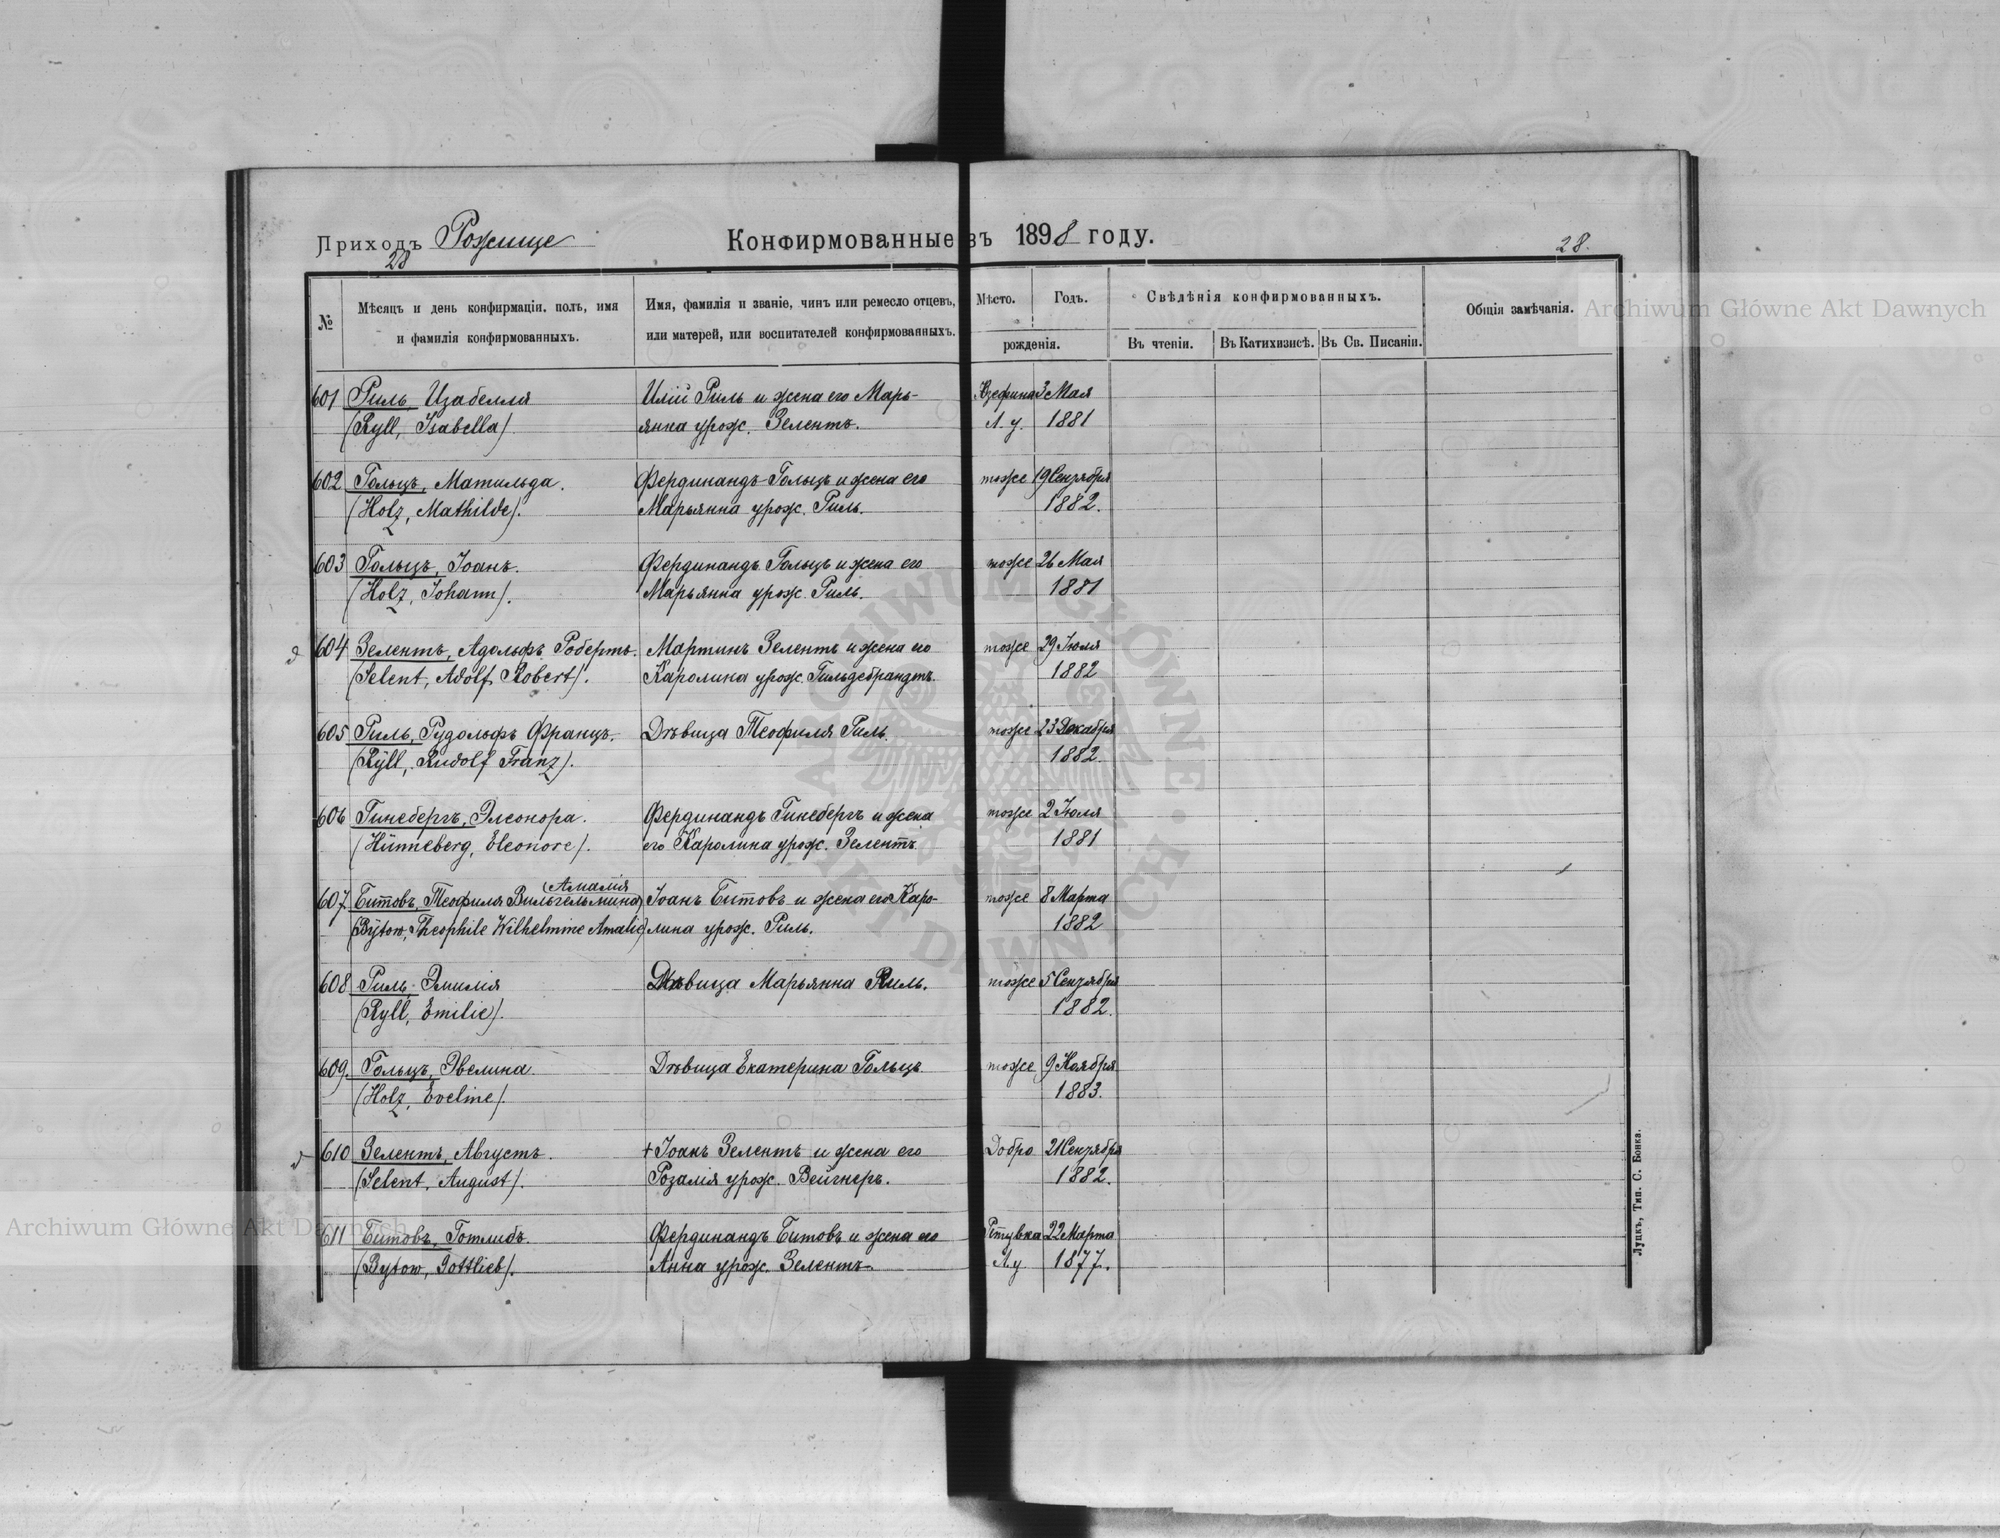 Приходъ Рожище
28
Конфирмованные въ 1898 году.
28.
№
Мѣсяцъ и день конфирмаціи, полъ, имя
и фамилія конфирмованныхъ.
Имя, фамилія и званіе, чинъ или ремесло отцевъ,
или матерей, или воспитателей конфирмованныхъ.
Мѣсто.
Годъ.
рожденія.
Свѣдѣнія конфирмованныхъ.
Въ чтеніи.
Въ Катихизисѣ.
Въ Св. Писаніи.
Общія замѣчанія.
601 Риль, Изабелля Илій Риль и жена его Марь- Юзефина 3 Мая
(Ryll, Isabella). янна урож. Зелентъ. Л. у. 1881
602 Гольцъ, Матильда. Фердинандъ Гольцъ и жена его тоже 19 Сентября
(Holz, Mathilde). Марьянна урож. Риль. 1882.
603 Гольцъ, Іоанъ. Фердинандъ Гольцъ и жена его тоже 26 Мая
(Holz, Johann). Марьянна урож. Риль. 1881
604 Зелентъ, Адольфъ Робертъ. Мартинъ Зелентъ и жена его тоже 29 Іюля
(Selent, Adolf Robert). Каролина урож. Гильдебрандтъ 1882
605 Риль, Рудольфъ Францъ. Дѣвица Теофиля Риль. тоже 23 Декабря
(Ryll, Rudolf Franz). 1882.
606 Гинебергъ, Элеонора. Фердинандъ Гинебергъ и жена тоже 2 Іюля
(Hünneberg, Eleonore). его Каролина урож. Зелентъ 1881
(Амалія
607 Битовъ, Теофиля Вильгельмина) Іоанъ Битовъ и жена его Каро- тоже 8 Марта
(Bytow, Theophile Wilhelmine Amalie) лина урож. Риль. 1882
608 Риль, Эмилія Дѣвица Марьянна Риль. тоже 5 Сентября
(Ryll, Emilie). 1882.
609. Гольцъ, Эвелина. Дѣвица Екатерина Гольцъ тоже 9 Ноября
(Holz, Eveline). 1883.
610 Зелентъ, Августъ. + Іоанъ Зелентъ и жена его Добро 21 Сентября
(Selent, August). Розалія урож. Вейгнеръ. 1882.
611 Битовъ, Готлибъ. Фердинандъ Битовъ и жена его 22 Марта
(Bytow, Gottlieb). Анна урож. Зелентъ Л. у 1877.
Луцкъ, Тип. С. Бонка.
Archiwum Główne Akt Dawnych
Archiwum Główne Akt Dawnych
ARCHIWUM GŁÓWNE AKT DAWNYCH